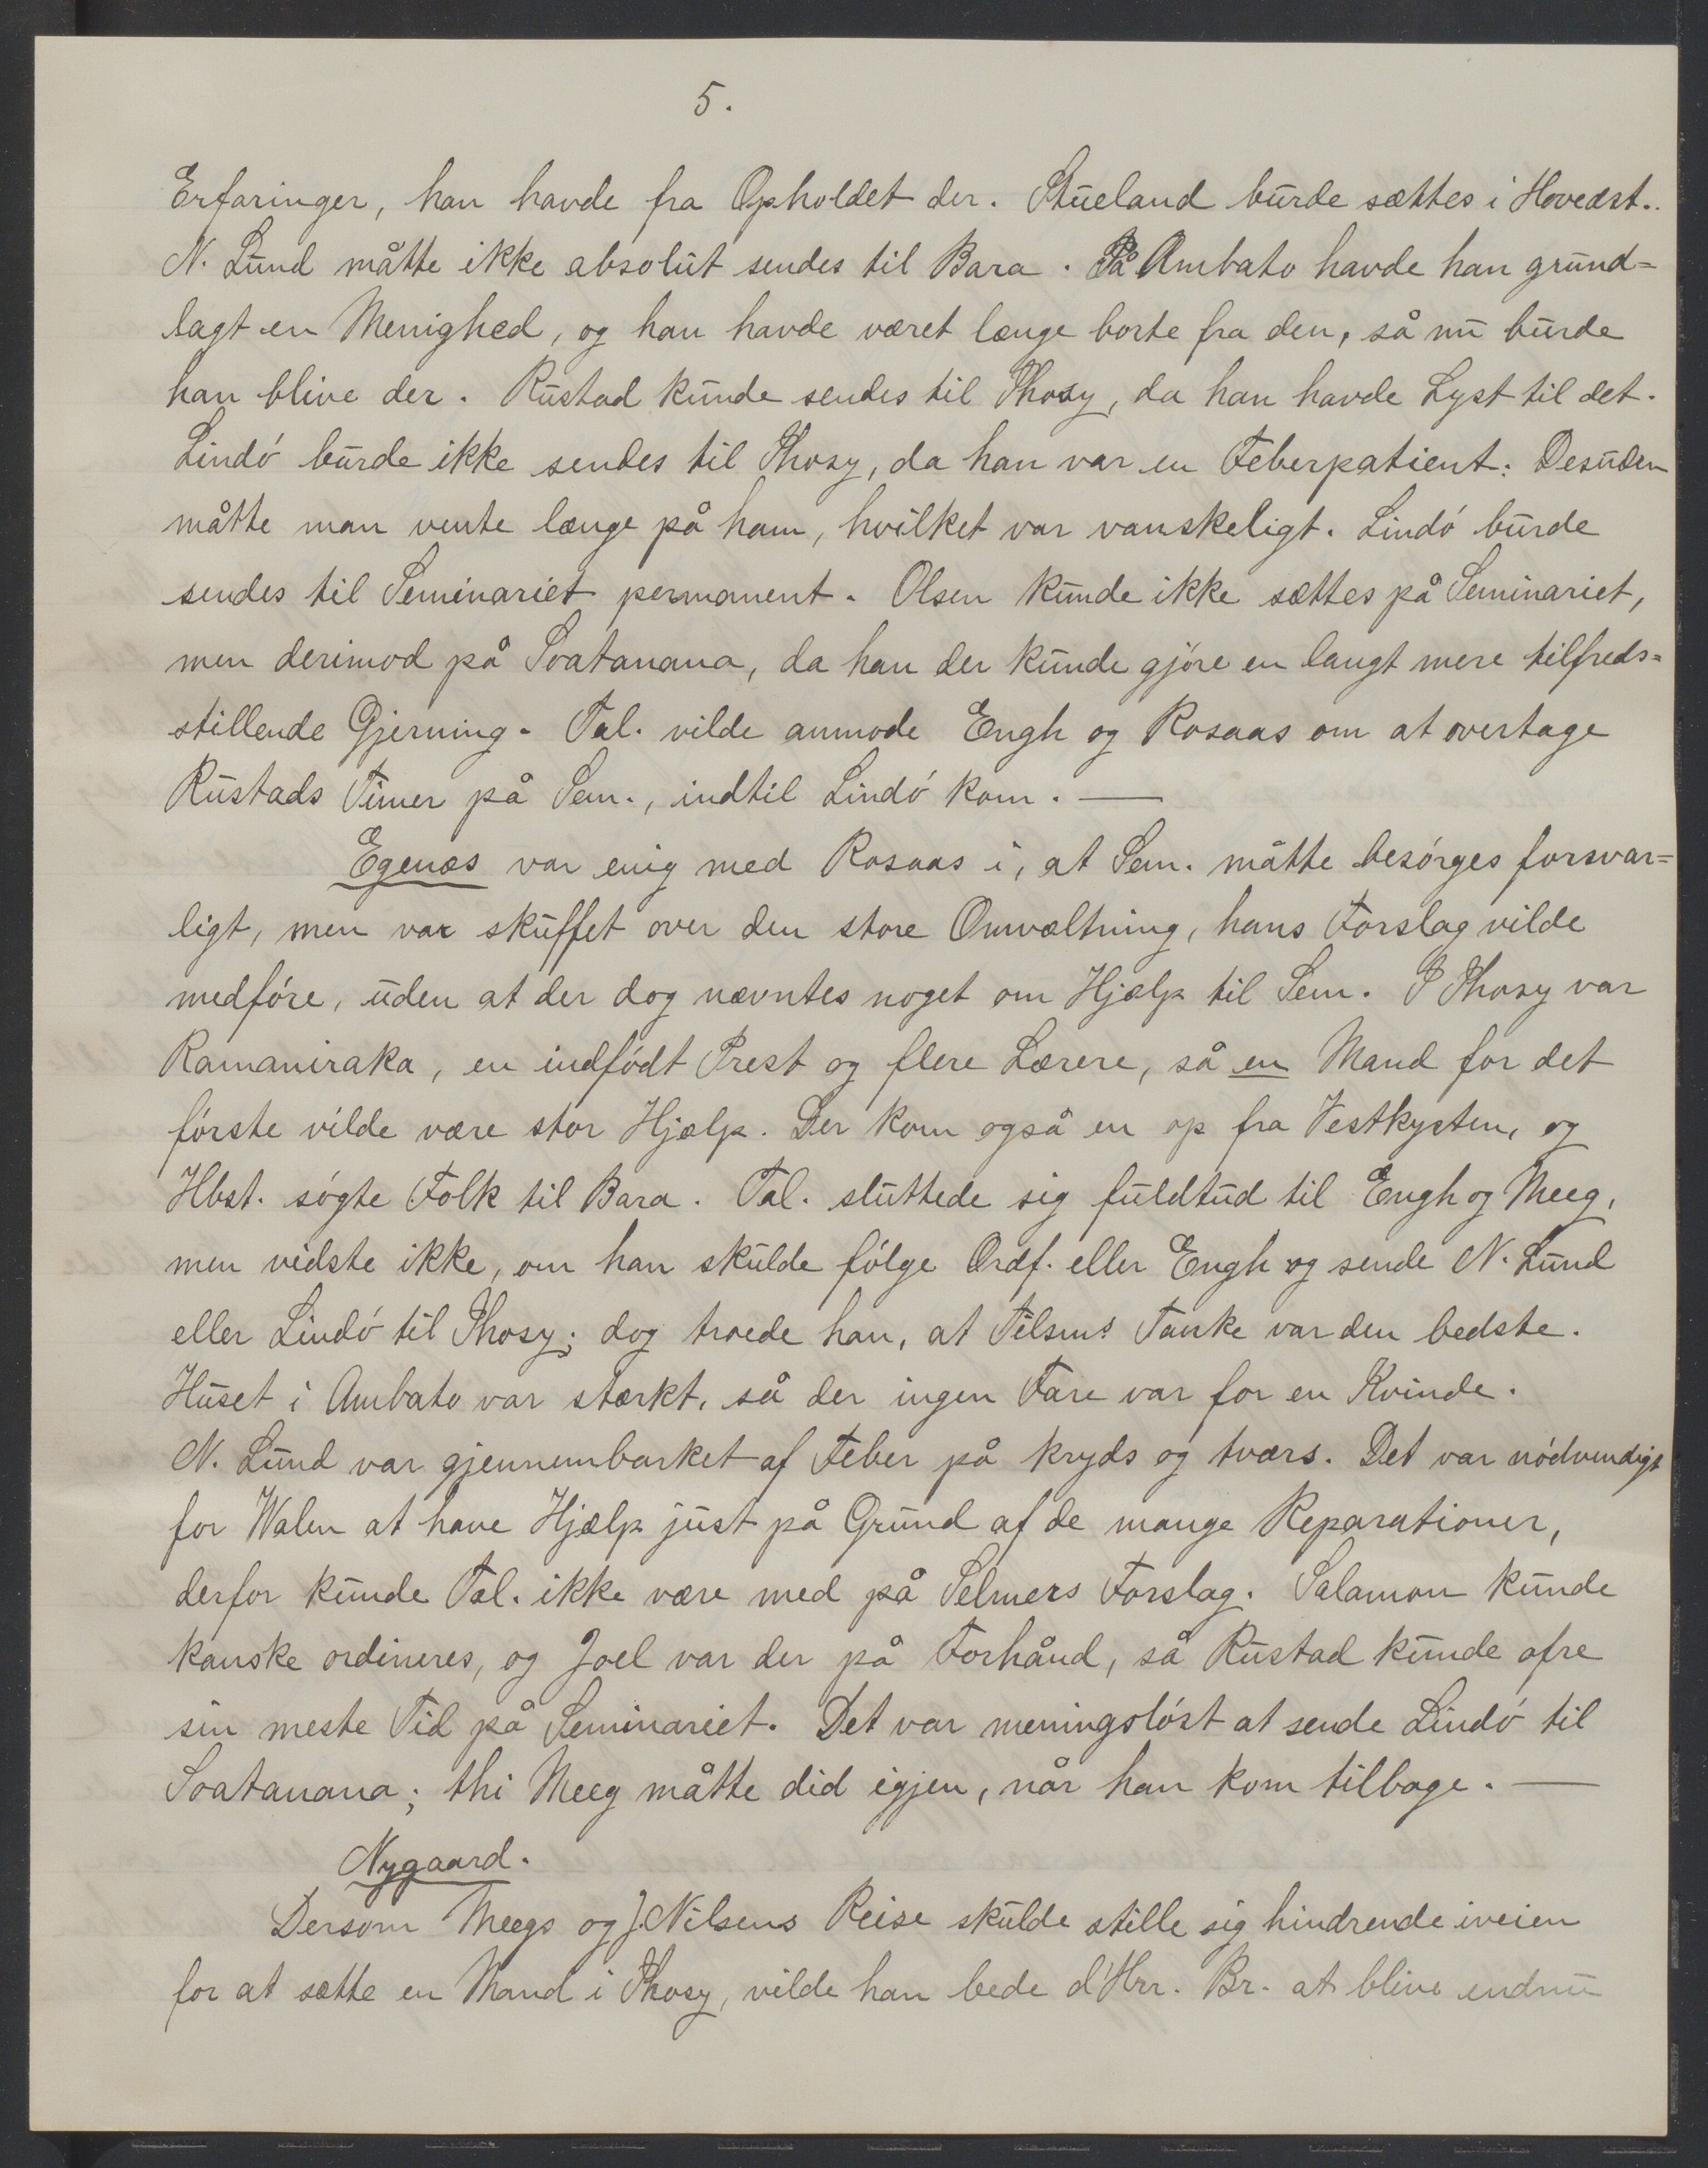 5.
Erfaringer, han havde fra Opholdet der. Stueland burde sættes i Hovedst..
N. Lund måtte ikke absolut sendes til Bara. På Ambato havde han grund=
lagt en Menighed, og han havde været længe borte fra den, så nu burde
han blive der. Rustad kunde sendes til Ihosy, da han havde Lyst til det.
Lindö burde ikke sendes til Ihosy, da han var en Feberpatient. Desuden
måtte man vente længe på ham, hvilket var vanskeligt. Lindö burde
sendes til Seminariet permanent. Olsen kunde ikke sættes på Seminariet,
men derimod på Soatanana, da han der kunde gjöre en langt mere tilfreds=
stillende Gjerning. Tal. vilde anmode Engh og Rosaas om at overtage
Rustads Timer på Sem., indtil Lindö kom. —
Egenæs var enig med Rosaas i, at Sem. måtte besörges forsvar=
ligt, men var skuffet over den store Omvæltning, hans Forslag vilde
medföre, uden at der dog nævntes noget om Hjælp til Sem. I Ihosy var
Ramaniraka, en indfödt Prest og flere Lærere, så en Mand for det
förste vilde være stor Hjælp. Der kom også en op fra Vestkysten, og
Hbst. sögte Folk til Bara. Tal. sluttede sig fuldtud til Engh og Meeg,
men vidste ikke, om han skulde fölge Ordf. eller Engh og sende N. Lund
eller Lindö til Ihosy; dog troede han, at Tilsms Tanke var den bedste.
Huset i Ambato var stærkt, så der ingen Fare var for en Kvinde.
N. Lund var gjennembarket af Feber på kryds og tværs. Det var nödvendigt
for Walen at have Hjælp just på Grund af de mange Reparationer,
derfor kunde Tal. ikke være med på Selmers Forslag. Salamon kunde
kanske ordineres, og Joel var der på Forhånd, så Rustad kunde ofre
sin meste Tid på Seminariet. Det var meningslöst at sende Lindö til
Soatanana; thi Meeg måtte did igjen, når han kom tilbage. —
Nygaard.
Dersom Meegs og J. Nilsens Reise skulde stille sig hindrende iveien
for at sætte en Mand i Ihosy, vilde han bede d'Hrr. Br. at blive endnu